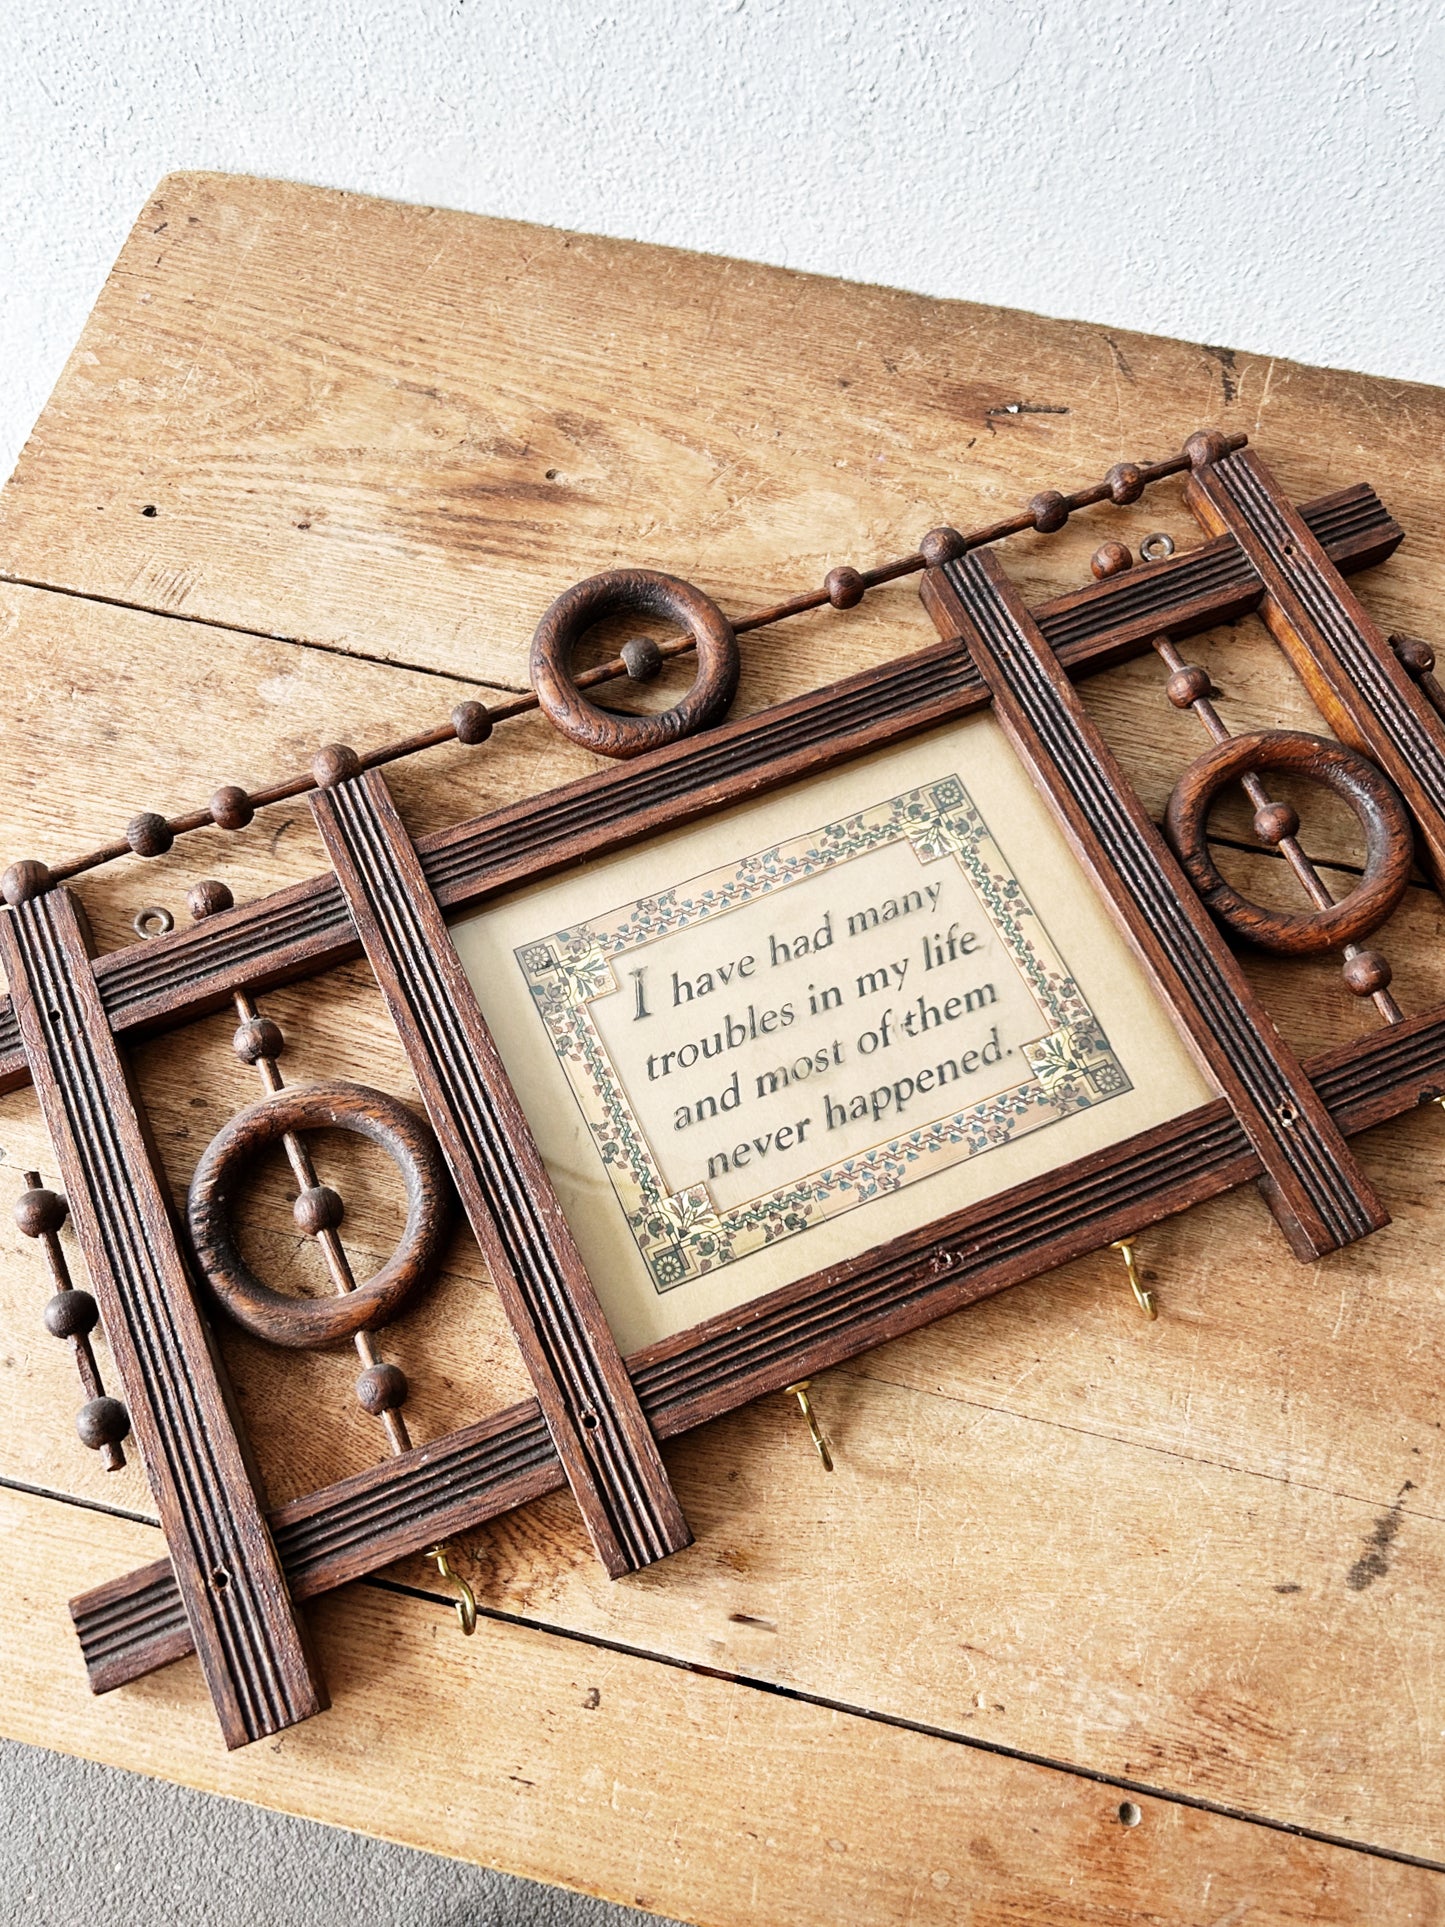 I have had many
troubles in my life
and most of them
never happened.